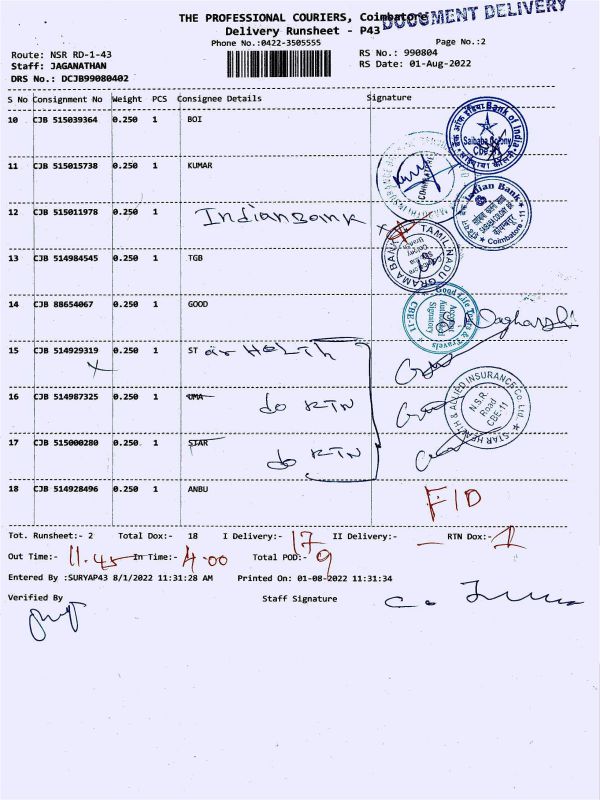 THE PROFESSIONAL COURIERS, Coimbatore
DOCUMENT DELIVERY
Delivery Runsheet - P43
Phone No.:0422-3505555
Page No.:2
Route: NSR RD-1-43
RS No.: 990804
Staff: JAGANATHAN
RS Date: 01-Aug-2022
DRS No.: DCJB99080402
S No Consignment No Weight PCS Consignee Details Signature
10 CJB 515039364 0.250 1 BOI
Bank of India
Saibaba Colony
11 CJB 515015738 0.250 1 KUMAR
COIMBATORE
12 CJB 515011978 0.250 1 Indian Bank
Indian Bank
Coimbatore - 11
13 CJB 514984545 0.250 1 TGB
TAMIL NADU GRAMA BANK
14 CJB 88654067 0.250 1 GOOD
Good Life Tours & Travels
CBE-11
Authorised
Signatory
15 CJB 514929319 0.250 1 ST ar HELTh
16 CJB 514987325 0.250 1 UMA do RTN
STAR HEALTH & ALLIED INSURANCE Co. Ltd.
N.S.R.
Road
CBE-11
17 CJB 515000280 0.250 1 STAR do RTN
18 CJB 514928496 0.250 1 ANBU F10
Tot. Runsheet:- 2 Total Dox:- 18 I Delivery:- 17 II Delivery:- — RTN Dox:- 1
Out Time:- 11.45 In Time:- 4.00 Total POD:- 9
Entered By :SURYAP43 8/1/2022 11:31:28 AM Printed On: 01-08-2022 11:31:34
Verified By Staff Signature